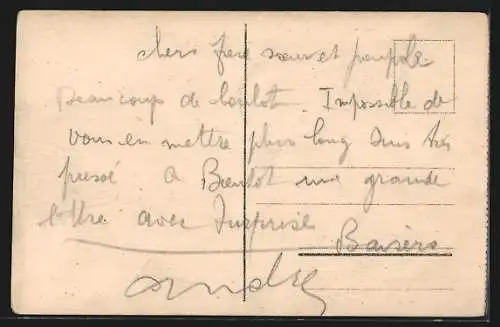 chers frere soeur et poupole
Beaucoup de boulot. Impossible de
vous en mettre plus long suis très
pressé. a Bientot une grande
lettre avec Surprise
Baisers
André